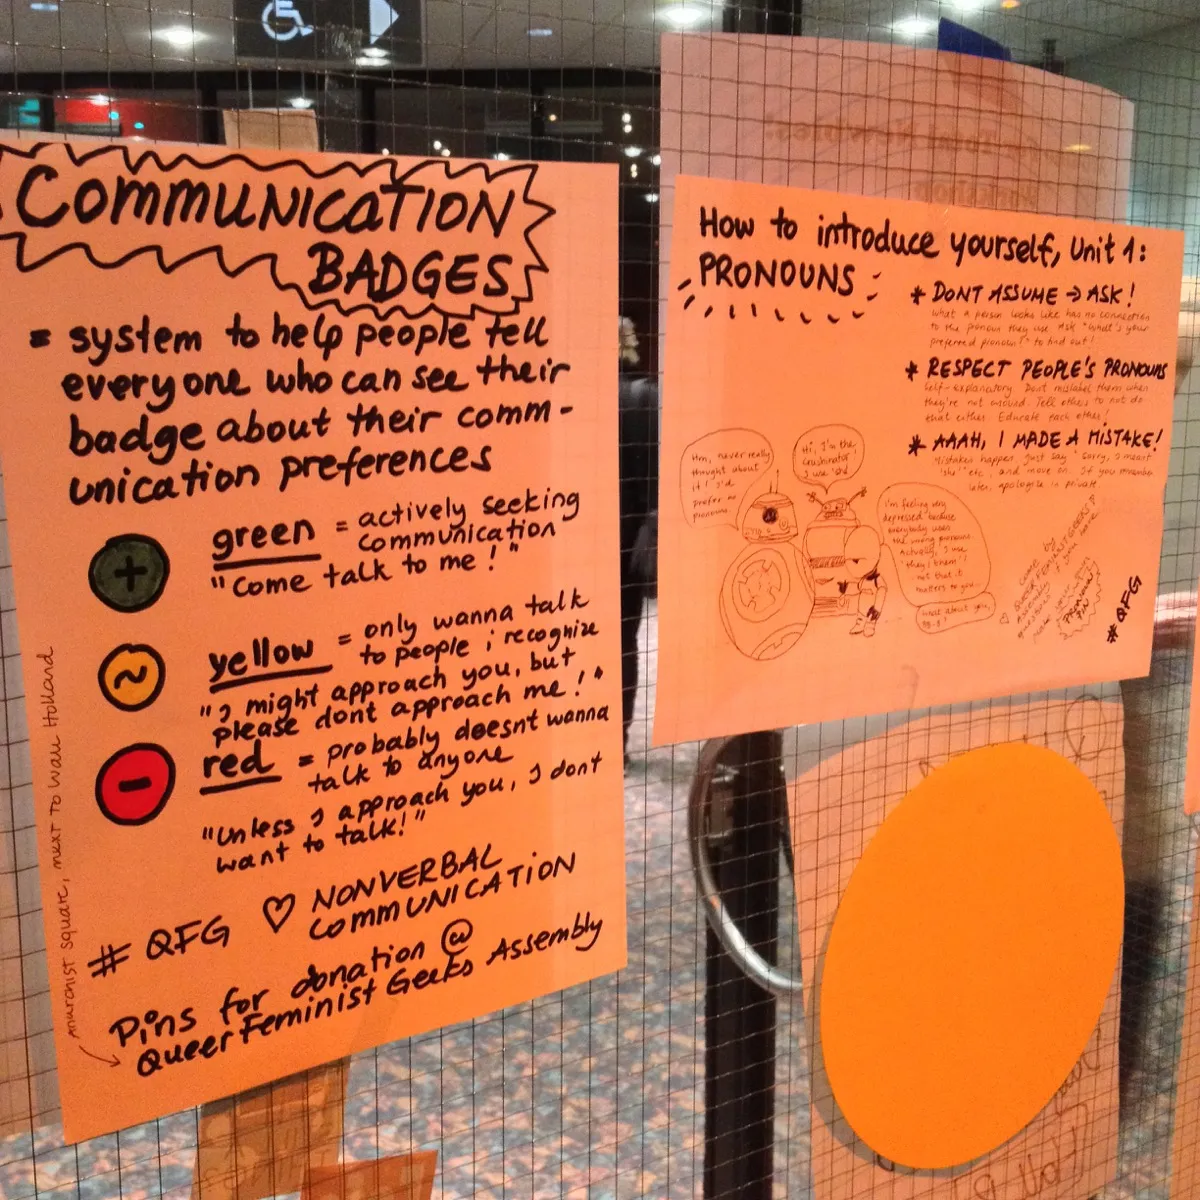 COMMUNICATION
BADGES
= system to help people tell
everyone who can see their
badge about their comm-
unication preferences
+ green = actively seeking
communication
"Come talk to me!"
~ yellow = only wanna talk
to people i recognize
"I might approach you, but
please dont approach me!"
- red = probably doesnt wanna
talk to anyone
"Unless I approach you, I dont
want to talk!"
# QFG ♡ NONVERBAL
COMMUNICATION
Pins for donation @
QueerFeminist Geeks Assembly
Anarchist square, next to wau Holland
How to introduce yourself, Unit 1:
PRONOUNS
* DONT ASSUME → ASK!
What a person looks like has no connection
to the pronoun they use. Ask "What's your
preferred pronoun?" to find out!
* RESPECT PEOPLE'S PRONOUNS
Self-explanatory. Dont mislabel them when
they're not around. Tell others to not do
that either. Educate each other!
* AAAH, I MADE A MISTAKE!
Mistakes happen. Just say "Sorry, I meant
'she'" etc, and move on. If you remember
later, apologize in private
Hm, never really
thought about
it! I'd
prefer no
pronouns.
Hi, I'm the
I use
I'm feeling very
depressed because
everybody uses
the wrong pronouns.
Actually, I use
'they/them'!
not that it
matters to you...
what about you,
BB-8?
come by
QUEER FEMINIST GEEKS
Assembly
if you
make your own
PRONOUN
PIN
#QFG